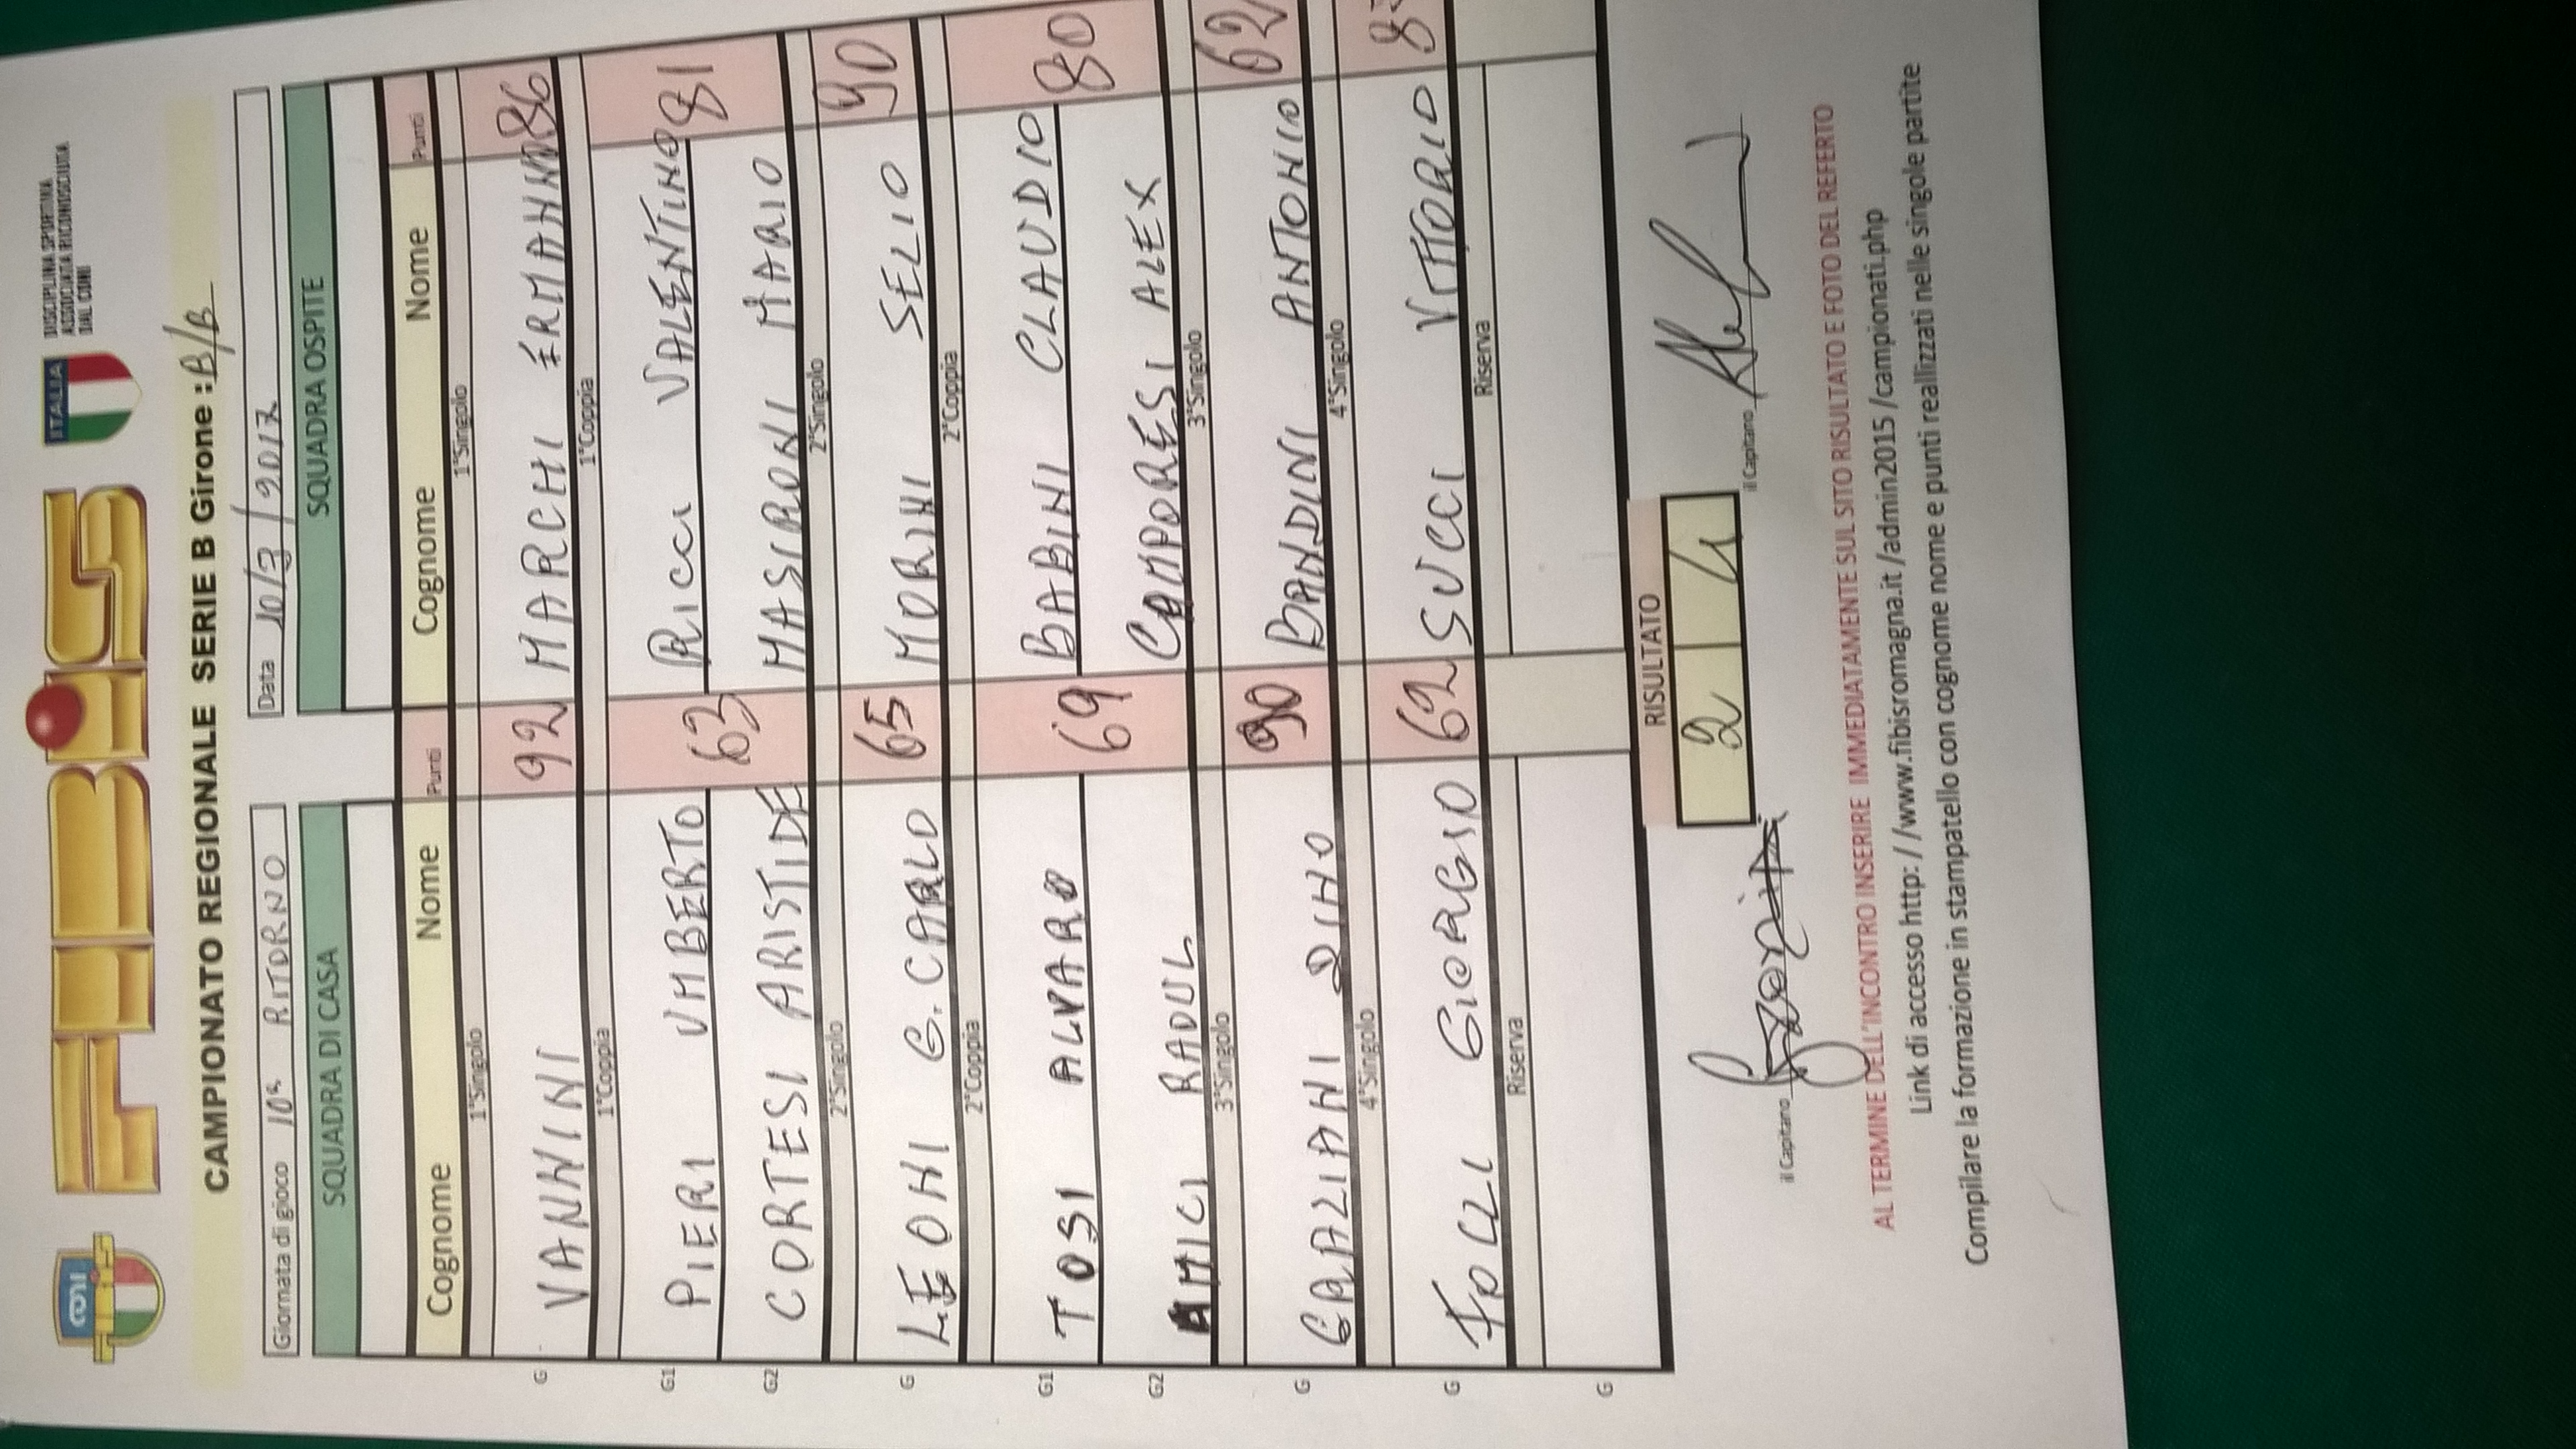 FIBiS
ITALIA
DISCIPLINA SPORTIVA
ASSOCIATA RICONOSCIUTA
DAL CONI
CAMPIONATO REGIONALE SERIE B Girone : B/B
Giornata di gioco 10ª RITORNO Data 10/3/2017
SQUADRA DI CASA SQUADRA OSPITE
Cognome Nome Punti Cognome Nome Punti
1°Singolo 1°Singolo
G VANNINI 92 MARCHI ERMANNO 86
1°Coppia 1°Coppia
G1 PIERI UMBERTO 63 RICCI VALENTINO 81
G2 CORTESI ARISTIDE MASIRONI MARIO
2°Singolo 2°Singolo
G LEONI G. CARLO 65 MORINI SELIO 90
2°Coppia 2°Coppia
G1 TOSI ALVARO 69 BABINI CLAUDIO 80
G2 AMICI RAOUL CAMPORESI ALEX
3°Singolo 3°Singolo
G GRAZIANI DINO 90 BANDINI ANTONIO 62
4°Singolo 4°Singolo
G FOLLI GIORGIO 62 SUCCI VITTORIO
Riserva Riserva
G
RISULTATO
2 4
il Capitano il Capitano
AL TERMINE DELL'INCONTRO INSERIRE IMMEDIATAMENTE SUL SITO RISULTATO E FOTO DEL REFERTO
Link di accesso http: / /www.fibisromagna.it /admin2015 /campionati.php
Compilare la formazione in stampatello con cognome nome e punti reallizzati nelle singole partite